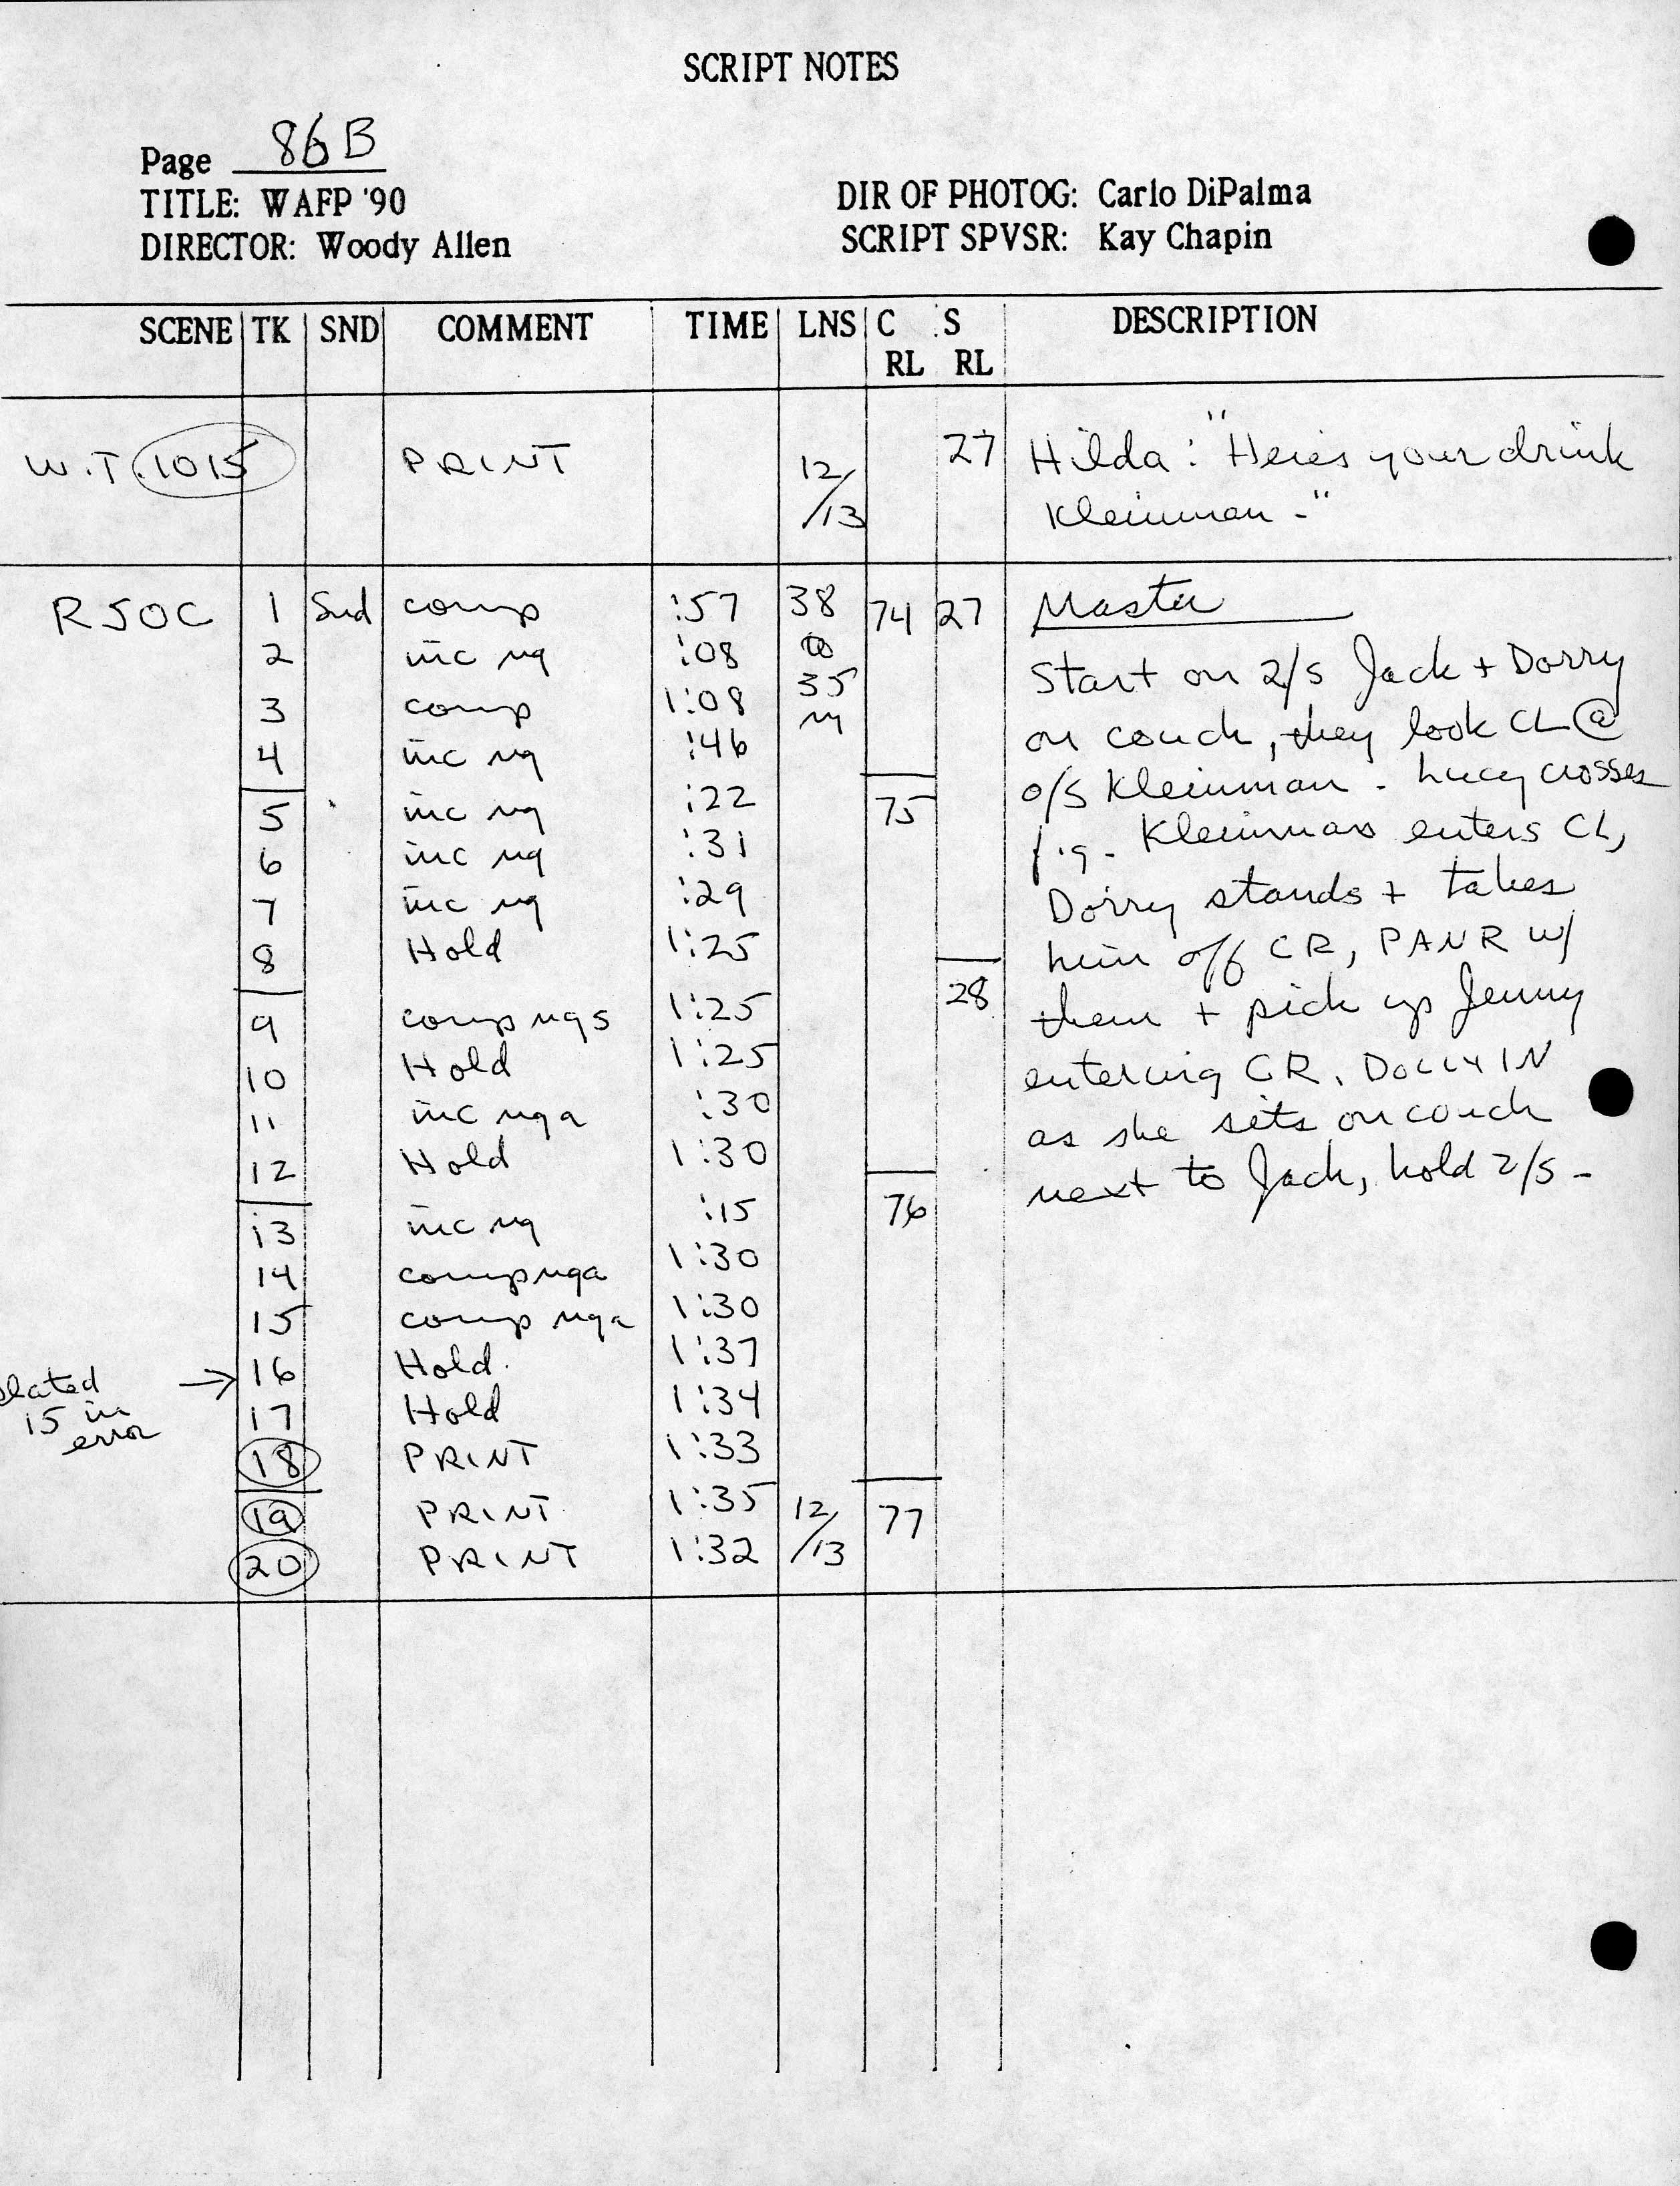 SCRIPT NOTES
Page 86B
TITLE: WAFP '90
DIRECTOR: Woody Allen
DIR OF PHOTOG: Carlo DiPalma
SCRIPT SPVSR: Kay Chapin
SCENE TK SND COMMENT TIME LNS C RL S RL DESCRIPTION
W.T. 1015 PRINT 12/13 27 Hilda: "Here's your drink
Kleinman -"
R50C 1 Snd comp :57 38 74 27 Master
2 inc ng :08 to Start on 2/s Jack + Dorry
3 comp 1:08 35 on couch, they look CL @
4 inc ng :46 o/s Kleinman - Lucy crosses
5 inc ng :22 75 f.g. - Kleinman enters CL,
6 inc ng :31 Dorry stands + takes
7 inc ng :29 him off CR, PAN R w/
8 Hold 1:25
9 comp ngs 1:25 28 them + pick up Jenny
10 Hold 1:25 entering CR. DOLLY IN
11 inc nga :30 as she sits on couch
12 Hold 1:30 next to Jack, hold 2/s -
13 inc ng :15 76
14 comp nga 1:30
15 comp nga 1:30
slated 15 in error → 16 Hold. 1:37
17 Hold 1:34
18 PRINT 1:33
19 PRINT 1:35 12/13 77
20 PRINT 1:32